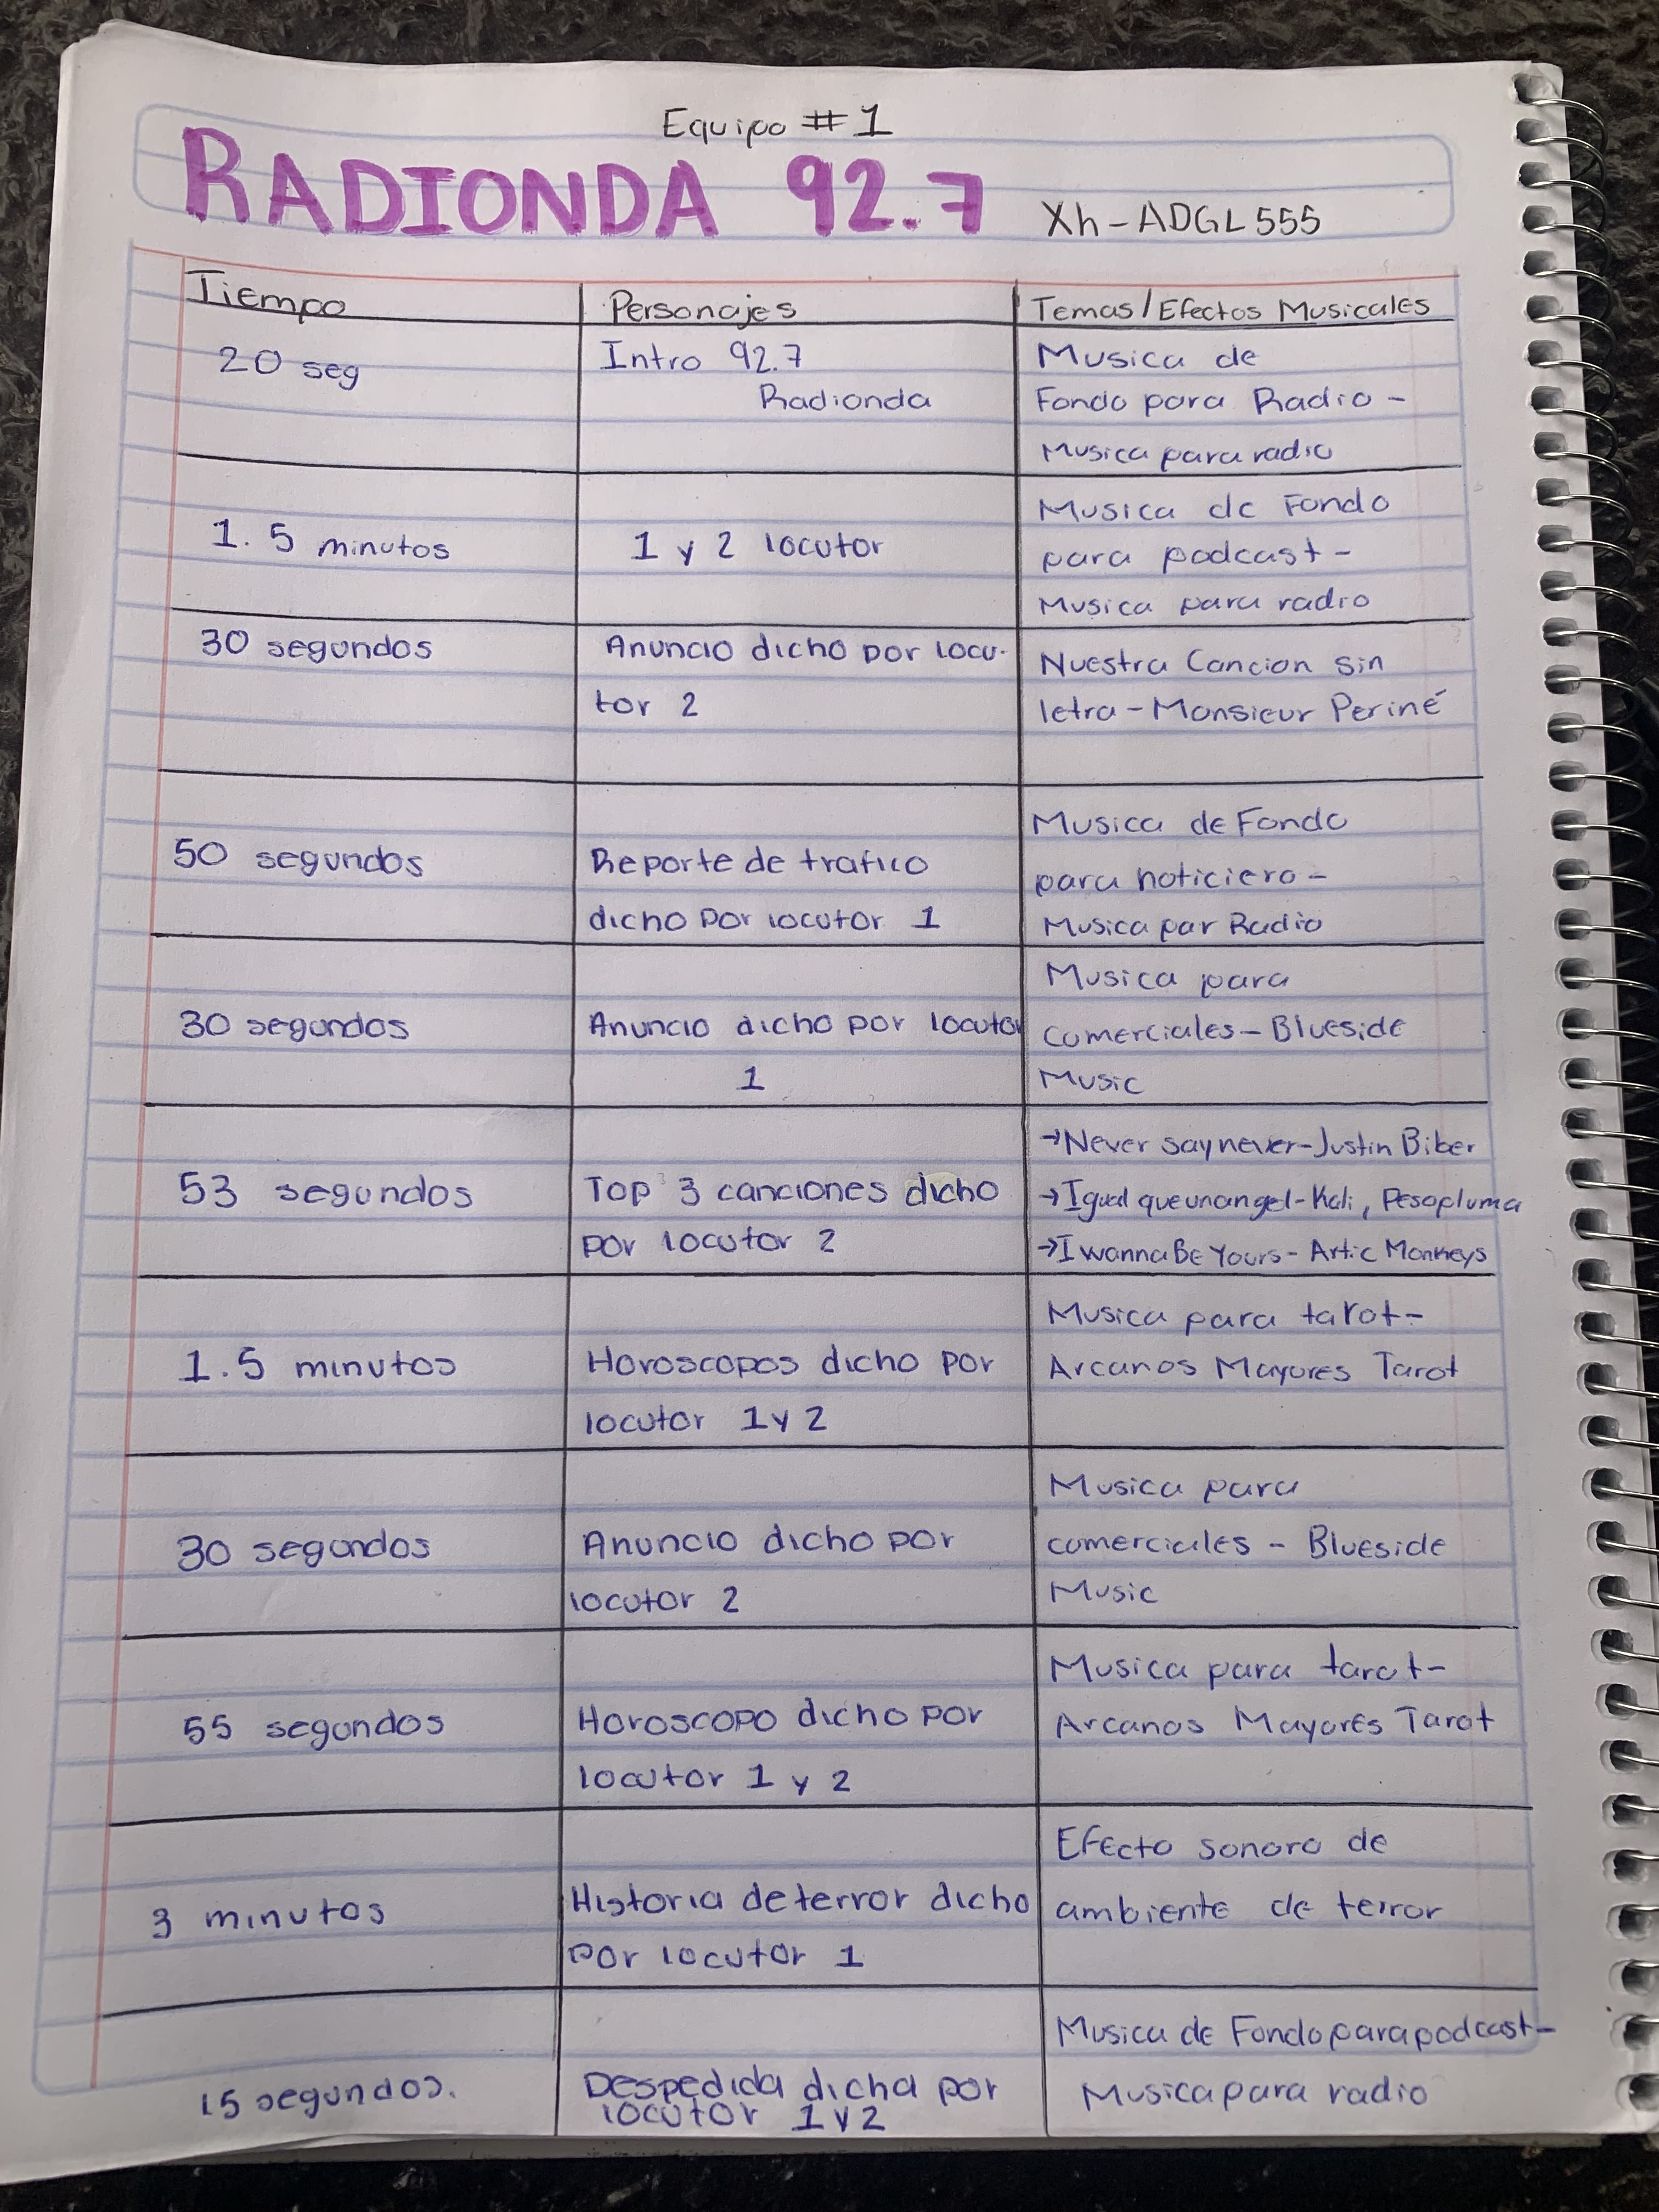 Equipo #1
RADIONDA 92.7 Xh-ADGL555
Tiempo Personajes Temas/Efectos Musicales
20 seg Intro 92.7 Musica de
Radionda Fondo para Radio-
Musica para radio
Musica de Fondo
1.5 minutos 1 y 2 locutor para podcast-
Musica para radio
30 segundos Anuncio dicho por locu- Nuestra Cancion sin
tor 2 letra-Monsieur Periné
Musica de Fondo
50 segundos Reporte de trafico para noticiero-
dicho por locutor 1 Musica par Radio
Musica para
30 segundos Anuncio dicho por locutor comerciales-Blueside
1 Music
→Never say never-Justin Biber
53 segundos Top 3 canciones dicho →Igual que un angel-Kali, Pesopluma
por locutor 2 →I wanna Be Yours- Artic Monkeys
Musica para tarot-
1.5 minutos Horoscopos dicho por Arcanos Mayores Tarot
locutor 1 y 2
Musica para
30 segundos Anuncio dicho por comerciales - Blueside
locutor 2 Music
Musica para tarot-
55 segundos Horoscopo dicho por Arcanos Mayores Tarot
locutor 1 y 2
Efecto sonoro de
3 minutos Historia de terror dicho ambiente de terror
por locutor 1
Musica de Fondo para podcast-
15 segundos. Despedida dicha por Musica para radio
locutor 1 y 2